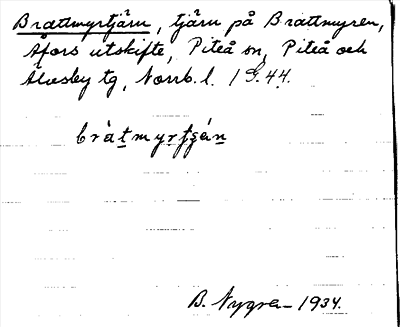 Brattmyrtjärn, tjärn på Brattmyren,
Åfors utskifte, Piteå sn, Piteå och
Älvsby tg, Norrb. l. 1 G. 44.
bràtmyrtʂä́n
B. Nygren 1934.